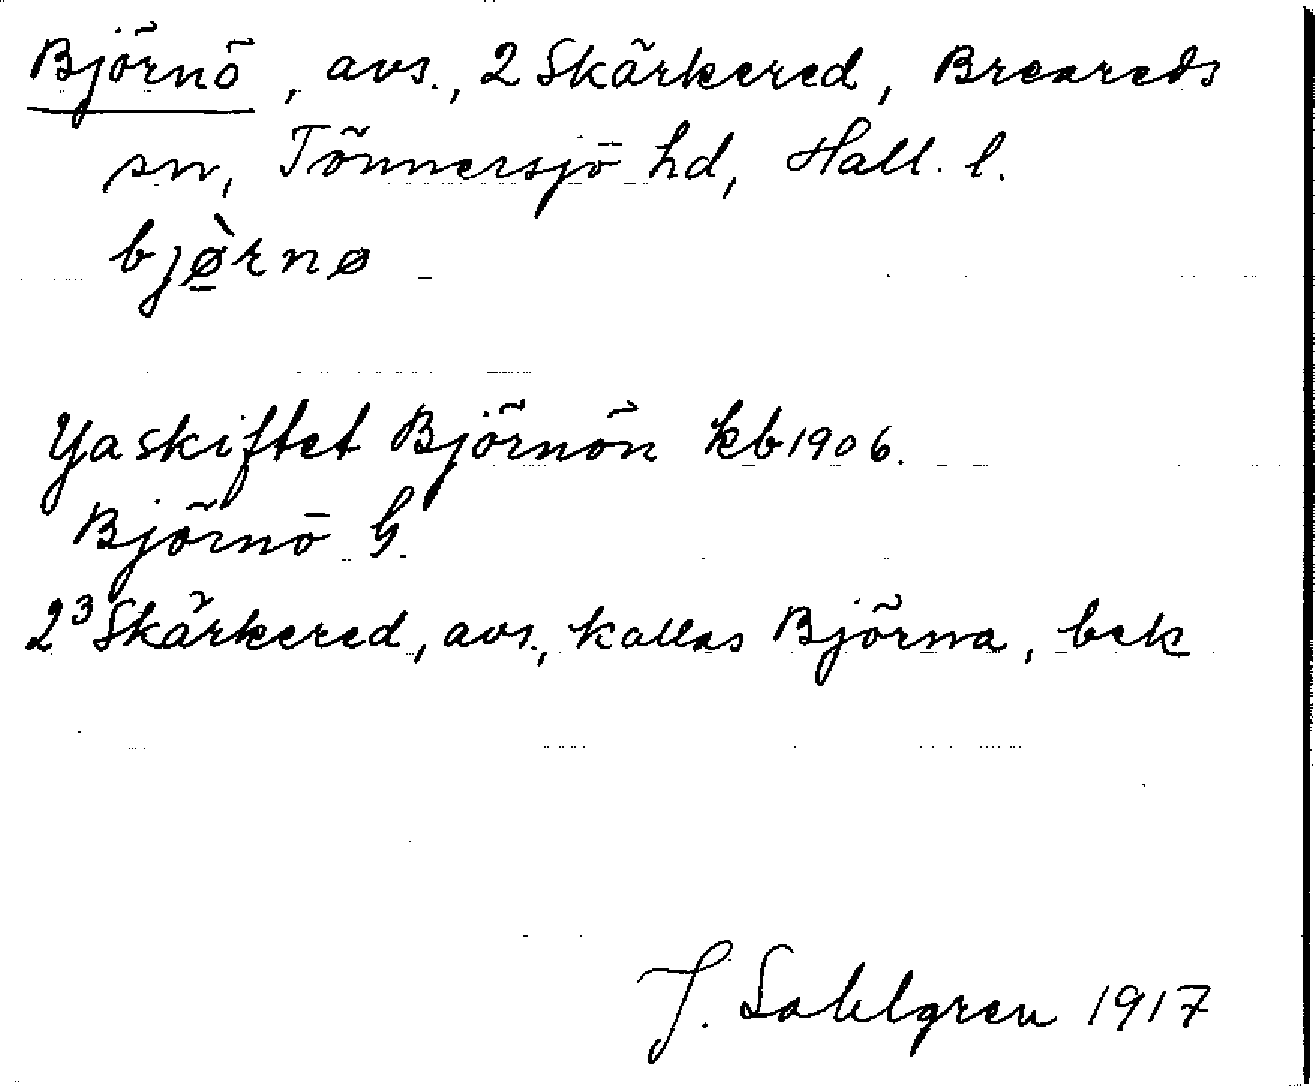 Björnö, avs., 2 Skärkered, Breareds
sn, Tönnersjö hd, Hall. l.
bjø̲̀rnø
Yaskiftet Björnön kb 1906.
Björnö G.
2³ Skärkered, avs., kallas Björna, bek
J. Sahlgren 1917